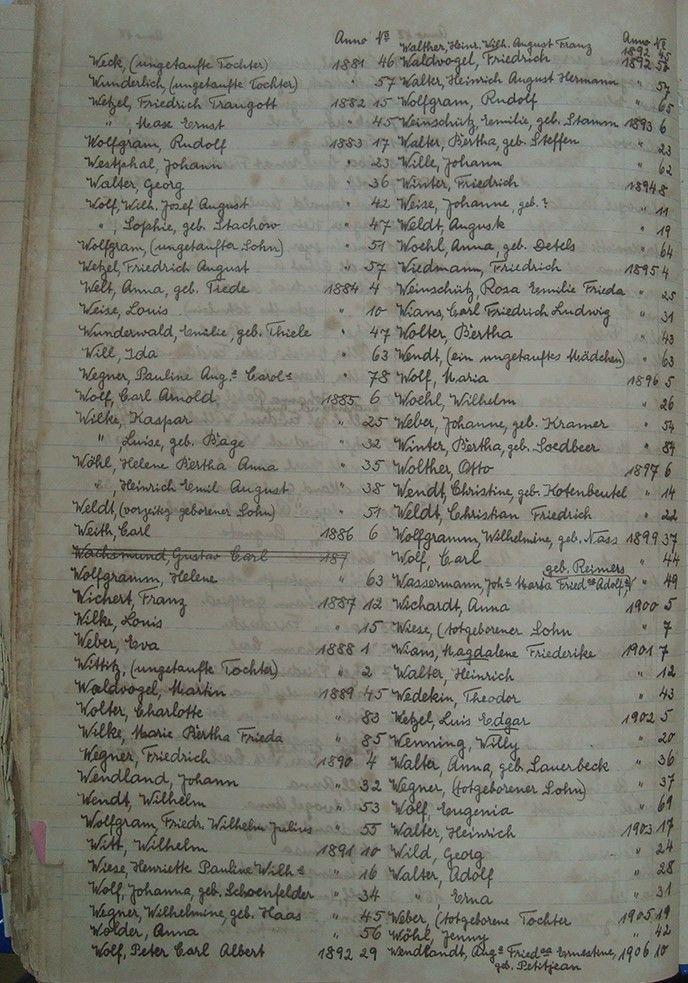 Anno No
Weck, (ungetaufte Tochter) 1881 46
Wunderlich, (ungetaufte Tochter) " 57
Wetzel, Friedrich Traugott 1882 15
" , Ernst " 45
Wolfgram, Rudolf 1883 17
Westphal, Johann " 23
Walter, Georg " 36
Wolf, Wilh. Josef August " 42
" , Sophie, geb. Stachow " 47
Wolfgram, (ungetaufter Sohn) " 51
Wetzel, Friedrich August " 57
Welt, Anna, geb. Tiede 1884 4
Weise, Louis " 10
Wunderwald, Emilie, geb. Thiele " 47
Will, Ida " 63
Wegner, Pauline Aug.ª Carol.ª " 78
Wolf, Carl Arnold 1885 6
Wilke, Kaspar " 25
" , Luise, geb. Bage " 32
Wöhl, Helene Bertha Anna " 35
" , Heinrich Emil August " 38
Weldt, (vorzeitig geborener Sohn) " 51
Weith, Carl 1886 6
Wachsmund, Gustav Carl 187
Wolfgramm, Helene " 63
Wichert, Franz 1887 12
Wilke, Louis " 15
Weber, Eva 1888 1
Wittitz, (ungetaufte Tochter) " 2
Waldvogel, Martin 1889 45
Wolter, Charlotte " 83
Wilke, Marie Bertha Frieda " 85
Wegner, Friedrich 1890 4
Wendland, Johann " 32
Wendt, Wilhelm " 53
Wolfgram, Friedr. Wilhelm Julius " 55
Witt, Wilhelm 1891 10
Wiese, Henriette Pauline Wilh.ª " 16
Wolf, Johanna, geb. Schoenfelder " 34
Wegner, Wilhelmine, geb. Haas " 45
Wolder, Anna " 56
Wolf, Peter Carl Albert 1892 29
Anno No
Walther, Heinr. Wilh. August Franz 1892 45
Waldvogel, Friedrich 1892 52
Walter, Heinrich August Hermann " 57
Wolfgram, Rudolf " 65
Weinschütz, Emilie, geb. Stamm 1893 6
Walter, Bertha, geb. Steffen " 23
Wille, Johann " 62
Winter, Friedrich 1894 8
Weise, Johanne, geb. ? " 11
Weldt, August " 19
Woehl, Anna, geb. Detels " 64
Wiedmann, Friedrich 1895 4
Weinschütz, Rosa Emilie Frieda " 25
Wians, Carl Friedrich Ludwig " 31
Wolter, Bertha " 43
Wendt, (ein ungetauftes Mädchen) " 63
Wolf, Maria 1896 5
Woehl, Wilhelm " 26
Weber, Johanne, geb. Kramer " 54
Winter, Bertha, geb. Soedbeer " 84
Wolther, Otto 1897 6
Wendt, Christine, geb. Kotenbeutel " 14
Weldt, Christian Friedrich " 22
Wolfgramm, Wilhelmine, geb. Nass 1899 37
Wolf, Carl " 44
geb. Reimers
Wassermann, Joh.ª Maria Fried.ca Adolf.ª " 49
Wichardt, Anna 1900 5
Wiese, (totgeborener Sohn " 7
Wians, Magdalene Friederike 1901 7
Walter, Heinrich " 12
Wedekin, Theodor " 43
Wetzel, Luis Edgar 1902 5
Wenning, Willy " 20
Walter, Anna, geb. Lauerbeck " 36
Wegner, (totgeborener Sohn) " 37
Wolf, Eugenia " 69
Walter, Heinrich 1903 17
Wild, Georg " 24
Walter, Adolf " 28
" , Erna " 31
Weber, (totgeborene Tochter 1905 19
Wöhl, Jenny " 42
Wendlandt, Aug.ª Fried.ca Ernestine, 1906 10
geb. Petitjean